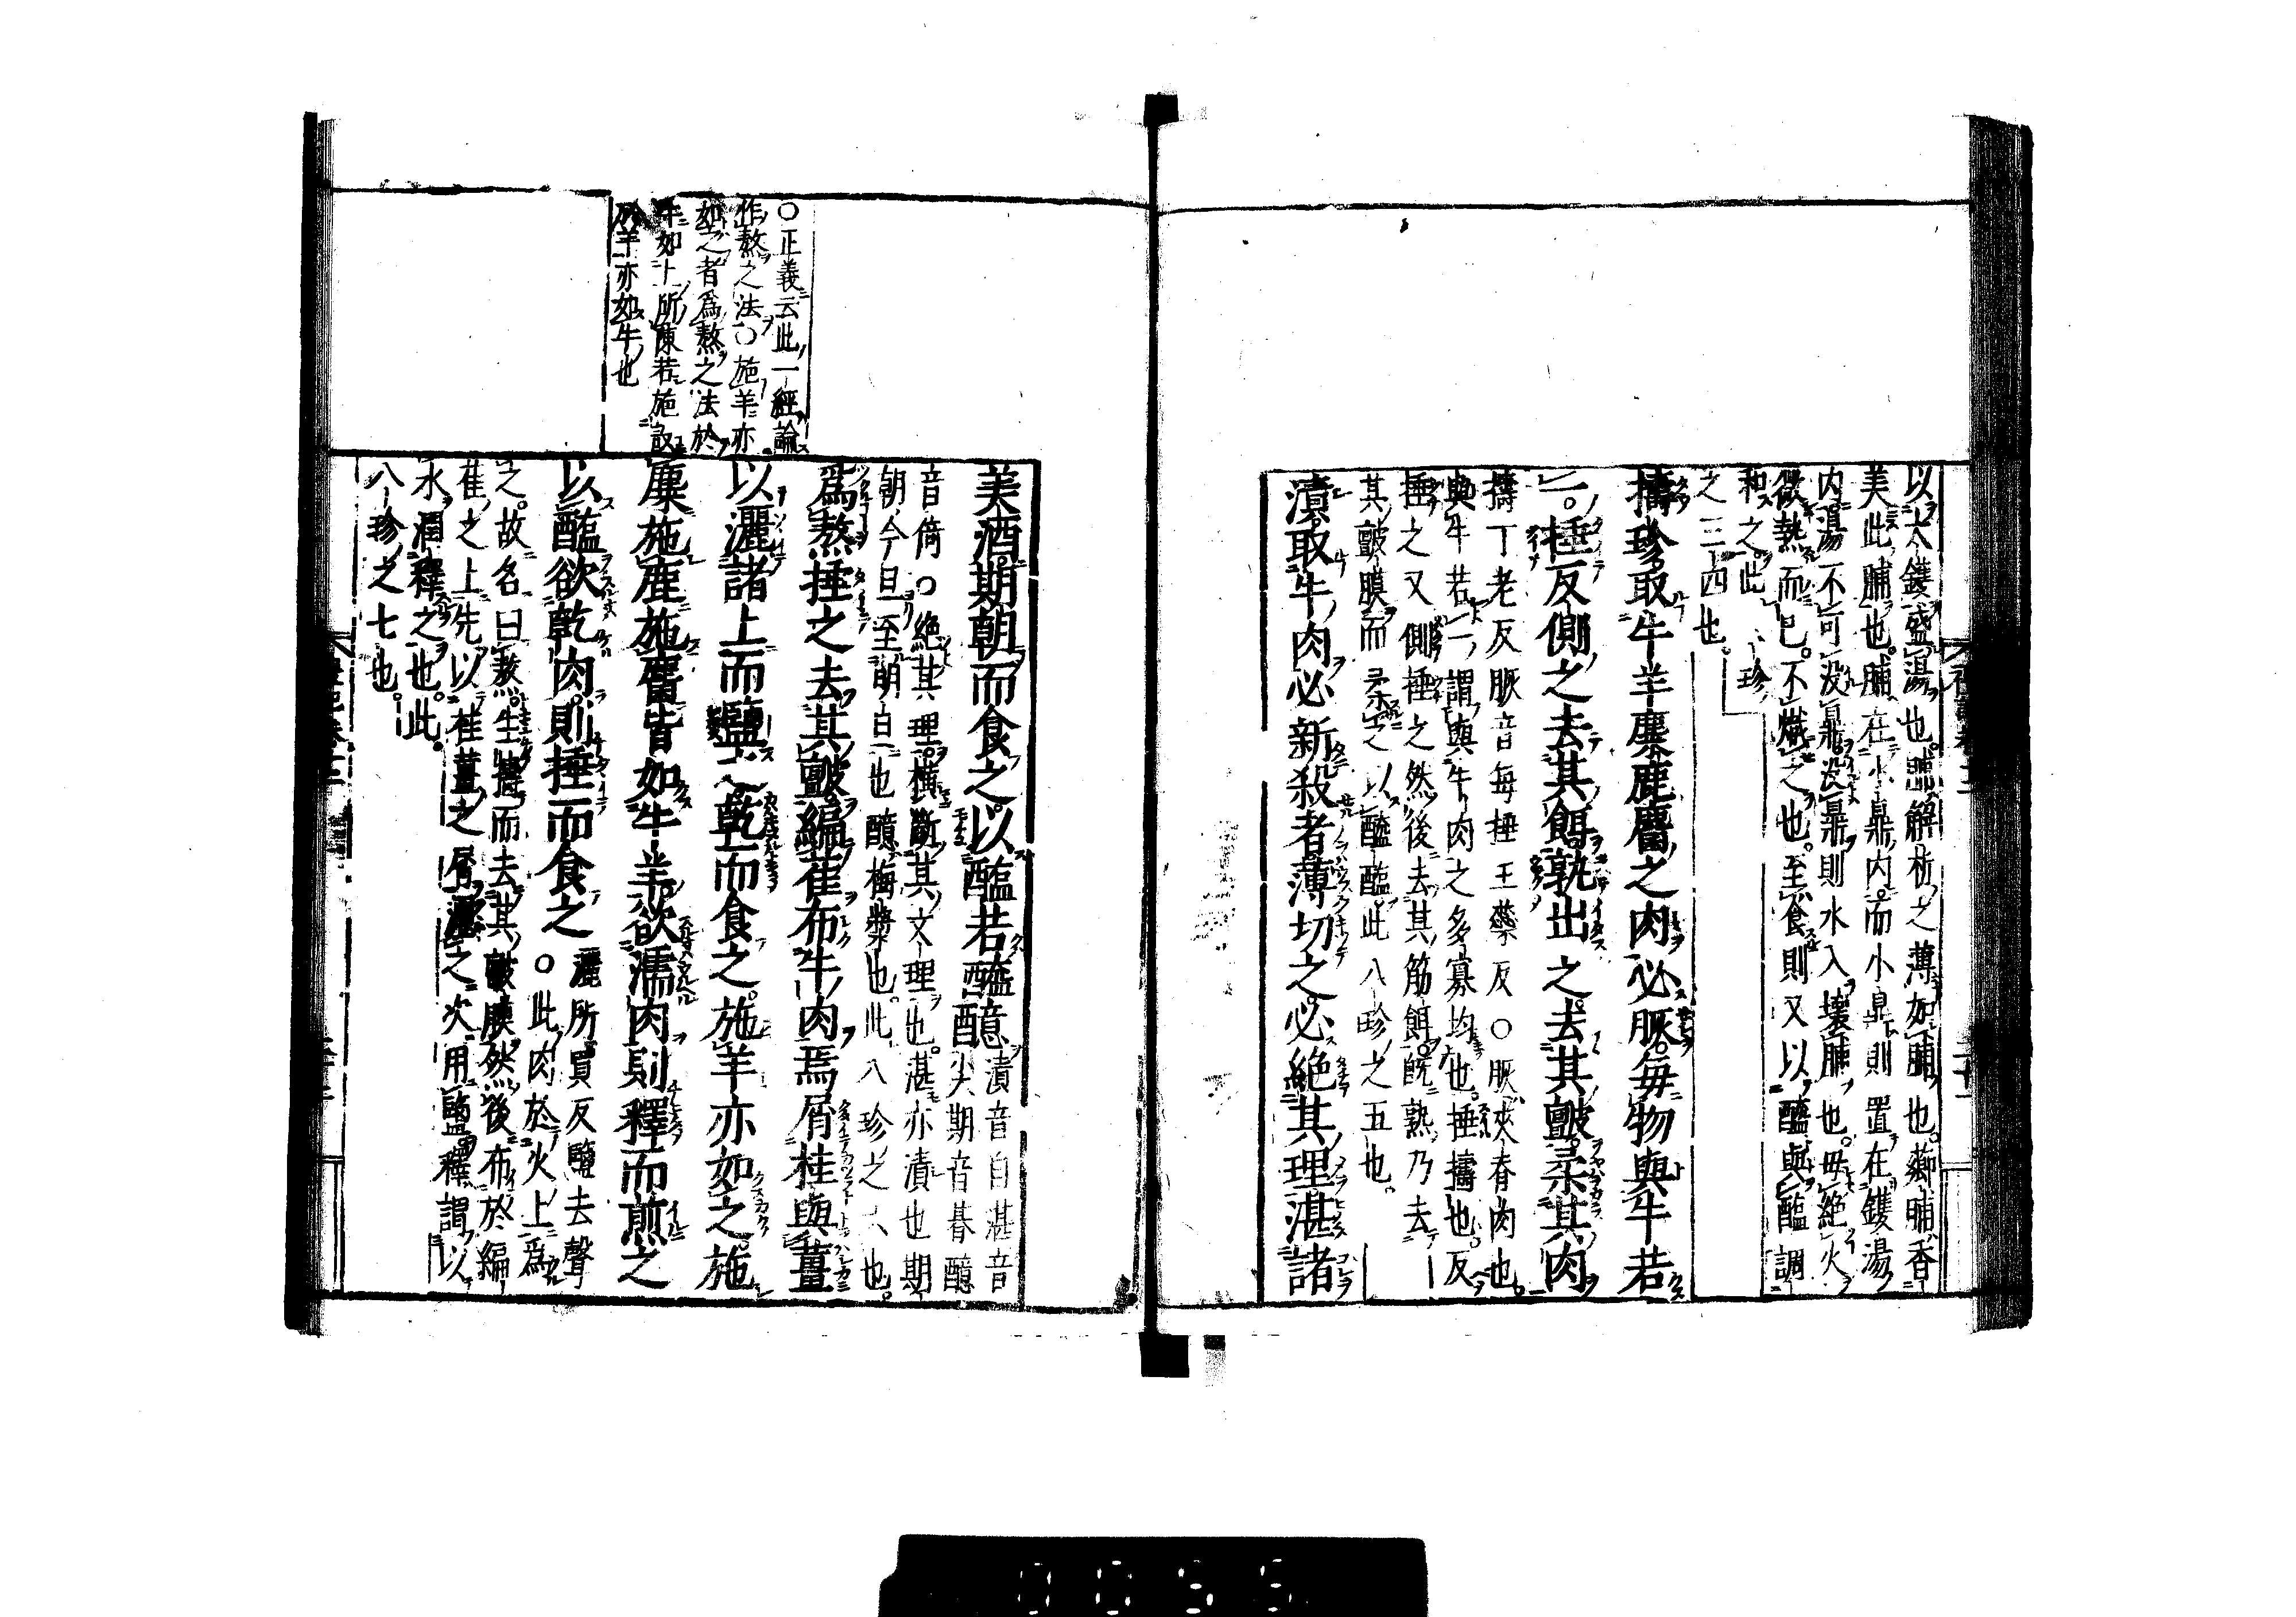 以大鑊盛湯也脯解析之薄如脯也薌脯香
美此脯也脯在小鼎內而小鼎則置在鑊湯
內湯不可没鼎没鼎則水入壞脯也毋絶火
欲熱而已不熾之也至食則又以醯與醢調
和之此八珍
之三四也
擣珍取牛羊麋鹿麕之肉必脄每物與牛若
一捶反側之去其餌孰出之去其皽柔其肉
擣丁老反脄音每捶王藥反○脄夾脊肉也
與牛若一謂與牛肉之多寡均也捶擣也反
捶之又側捶之然後去其筋餌既熟乃去
其皽膜而柔之以醯醢此八珍之五也
漬取牛肉必新殺者薄切之必絶其理湛諸
美酒期朝而食之以醢若醯醷漬音自湛音
尖期音朞醷
音倚○絶其理横斷其文理也湛亦漬也期
朝今旦至明旦也醷梅漿也此八珍之六也
爲熬捶之去其皽編萑布牛肉焉屑桂與薑
以灑諸上而鹽之乾而食之施羊亦如之施
麋施鹿施麕皆如牛羊欲濡肉則釋而煎之
以醢欲乾肉則捶而食之灑所買反鹽去聲
○此肉於火上爲
之故名曰熬生擣而去其皽膜然後布於編
萑之上先以桂薑之屑灑之次用鹽釋謂以
水潤釋之也此
八珍之七也
○正義云此一經論
作熬之法○施羊亦
如之者爲熬之法於
牛如上所陳若施設
於羊亦如牛也